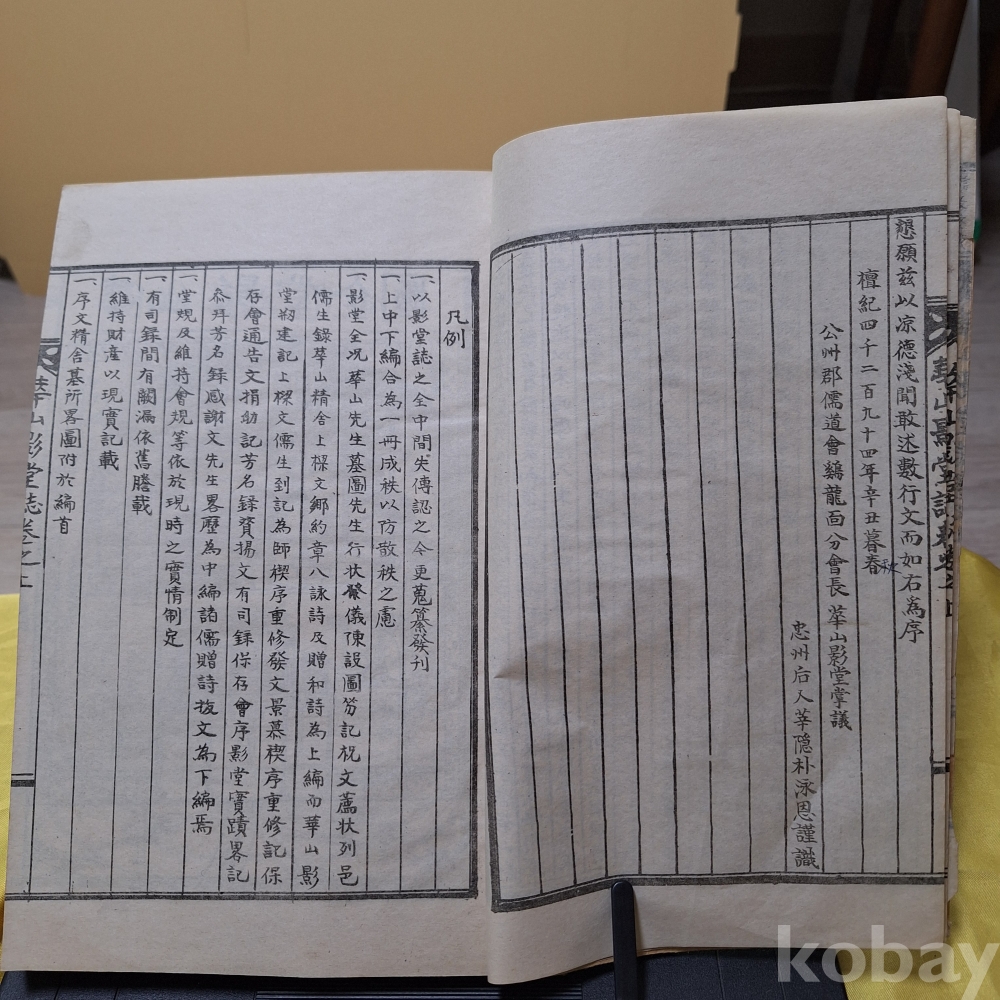 懇願兹以凉德淺聞敢述數行文而如右爲序
檀紀四千二百九十四年辛丑暮春
秋
公州郡儒道會鷄龍面分會長 華山影堂掌議
忠州后人華隱朴泳恩謹識
凡例
一、以影堂誌之全中間失傳認之今更蒐纂發刊
一、上中下編合為一冊成秩以防散秩之慮
一、影堂全况華山先生墓圖先生行状祭儀陳設圖笏記祝文薦状列邑
儒生錄華山精舍上樑文鄉約章八詠詩及贈和詩為上編而華山影
堂刱建記上樑文儒生到記為師稧序重修發文景慕稧序重修記保
存會通告文捐助記芳名録賛揚文有司録保存會序影堂實蹟畧記
叅拜芳名録感謝文先生畧歷為中編諸儒贈詩拔文為下編焉
一、堂規及維持會規等依於現時之實情制定
一、有司録間有闕漏依舊謄載
一、維持財産以現實記載
一、序文精舍墓所畧圖附於編首
華山影堂誌卷之上
kobay